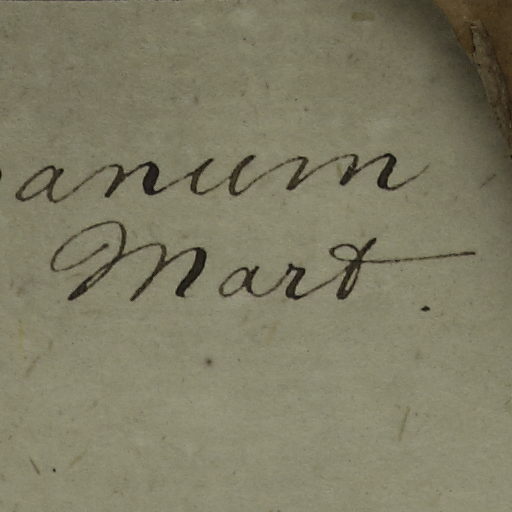 anum
Mart.